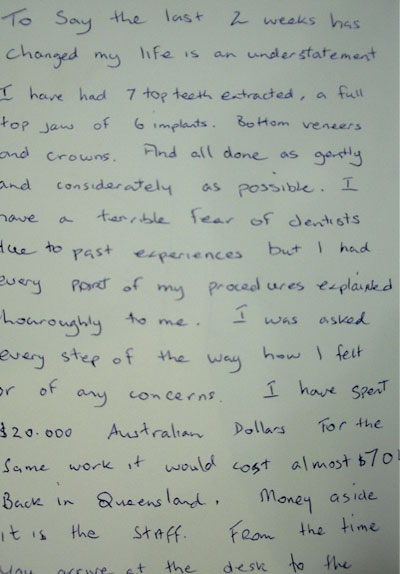 To Say the last 2 weeks has
changed my life is an understatement
I have had 7 top teeth extracted, a full
top jaw of 6 implants. Bottom veneers
and crowns. And all done as gently
and considerately as possible. I
have a terrible fear of dentists
due to past experiences but I had
every point of my procedures explained
thouroughly to me. I was asked
every step of the way how I felt
or of any concerns. I have spent
$20.000 Australian Dollars For the
Same work it would cost almost $70
Back in Queensland. Money aside
it is the STAFF. From the time
you arrive at the desk to the